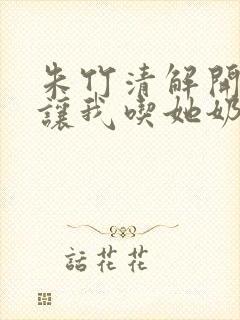 朱竹清解開
讓我喫她奶
話花花